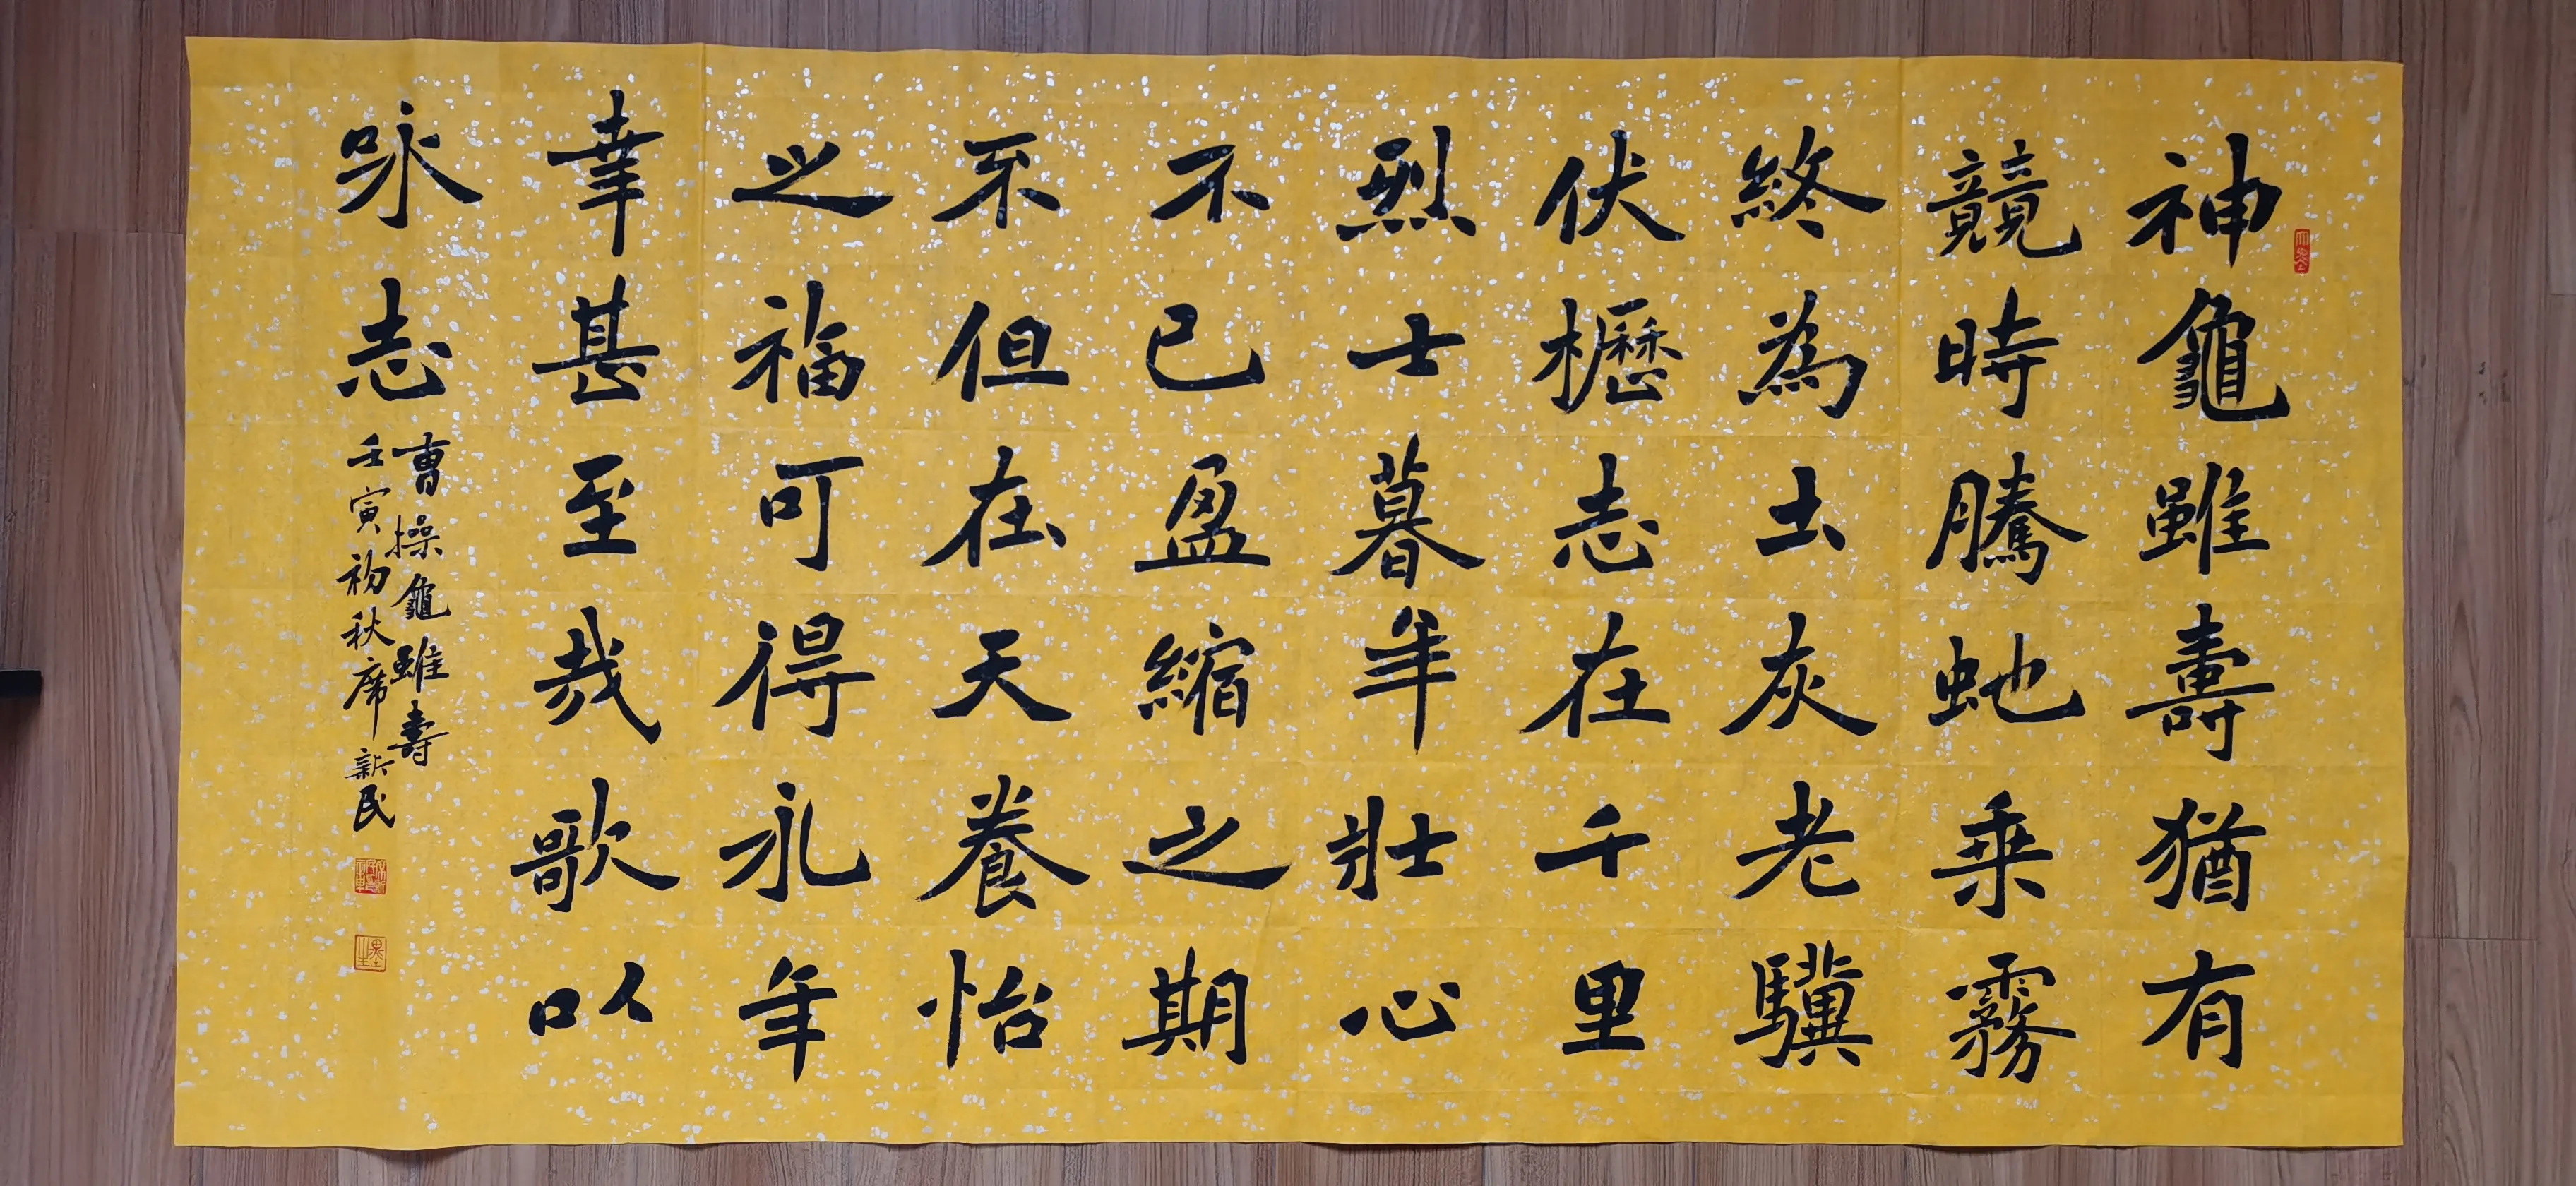 神龜雖壽猶有
競時騰虵乗霧
終為土灰老驥
伏櫪志在千里
烈士暮年壯心
不已盈縮之期
不但在天養怡
之福可得永年
幸甚至哉歌以
咏志
曹操龜雖壽
壬寅初秋席新民